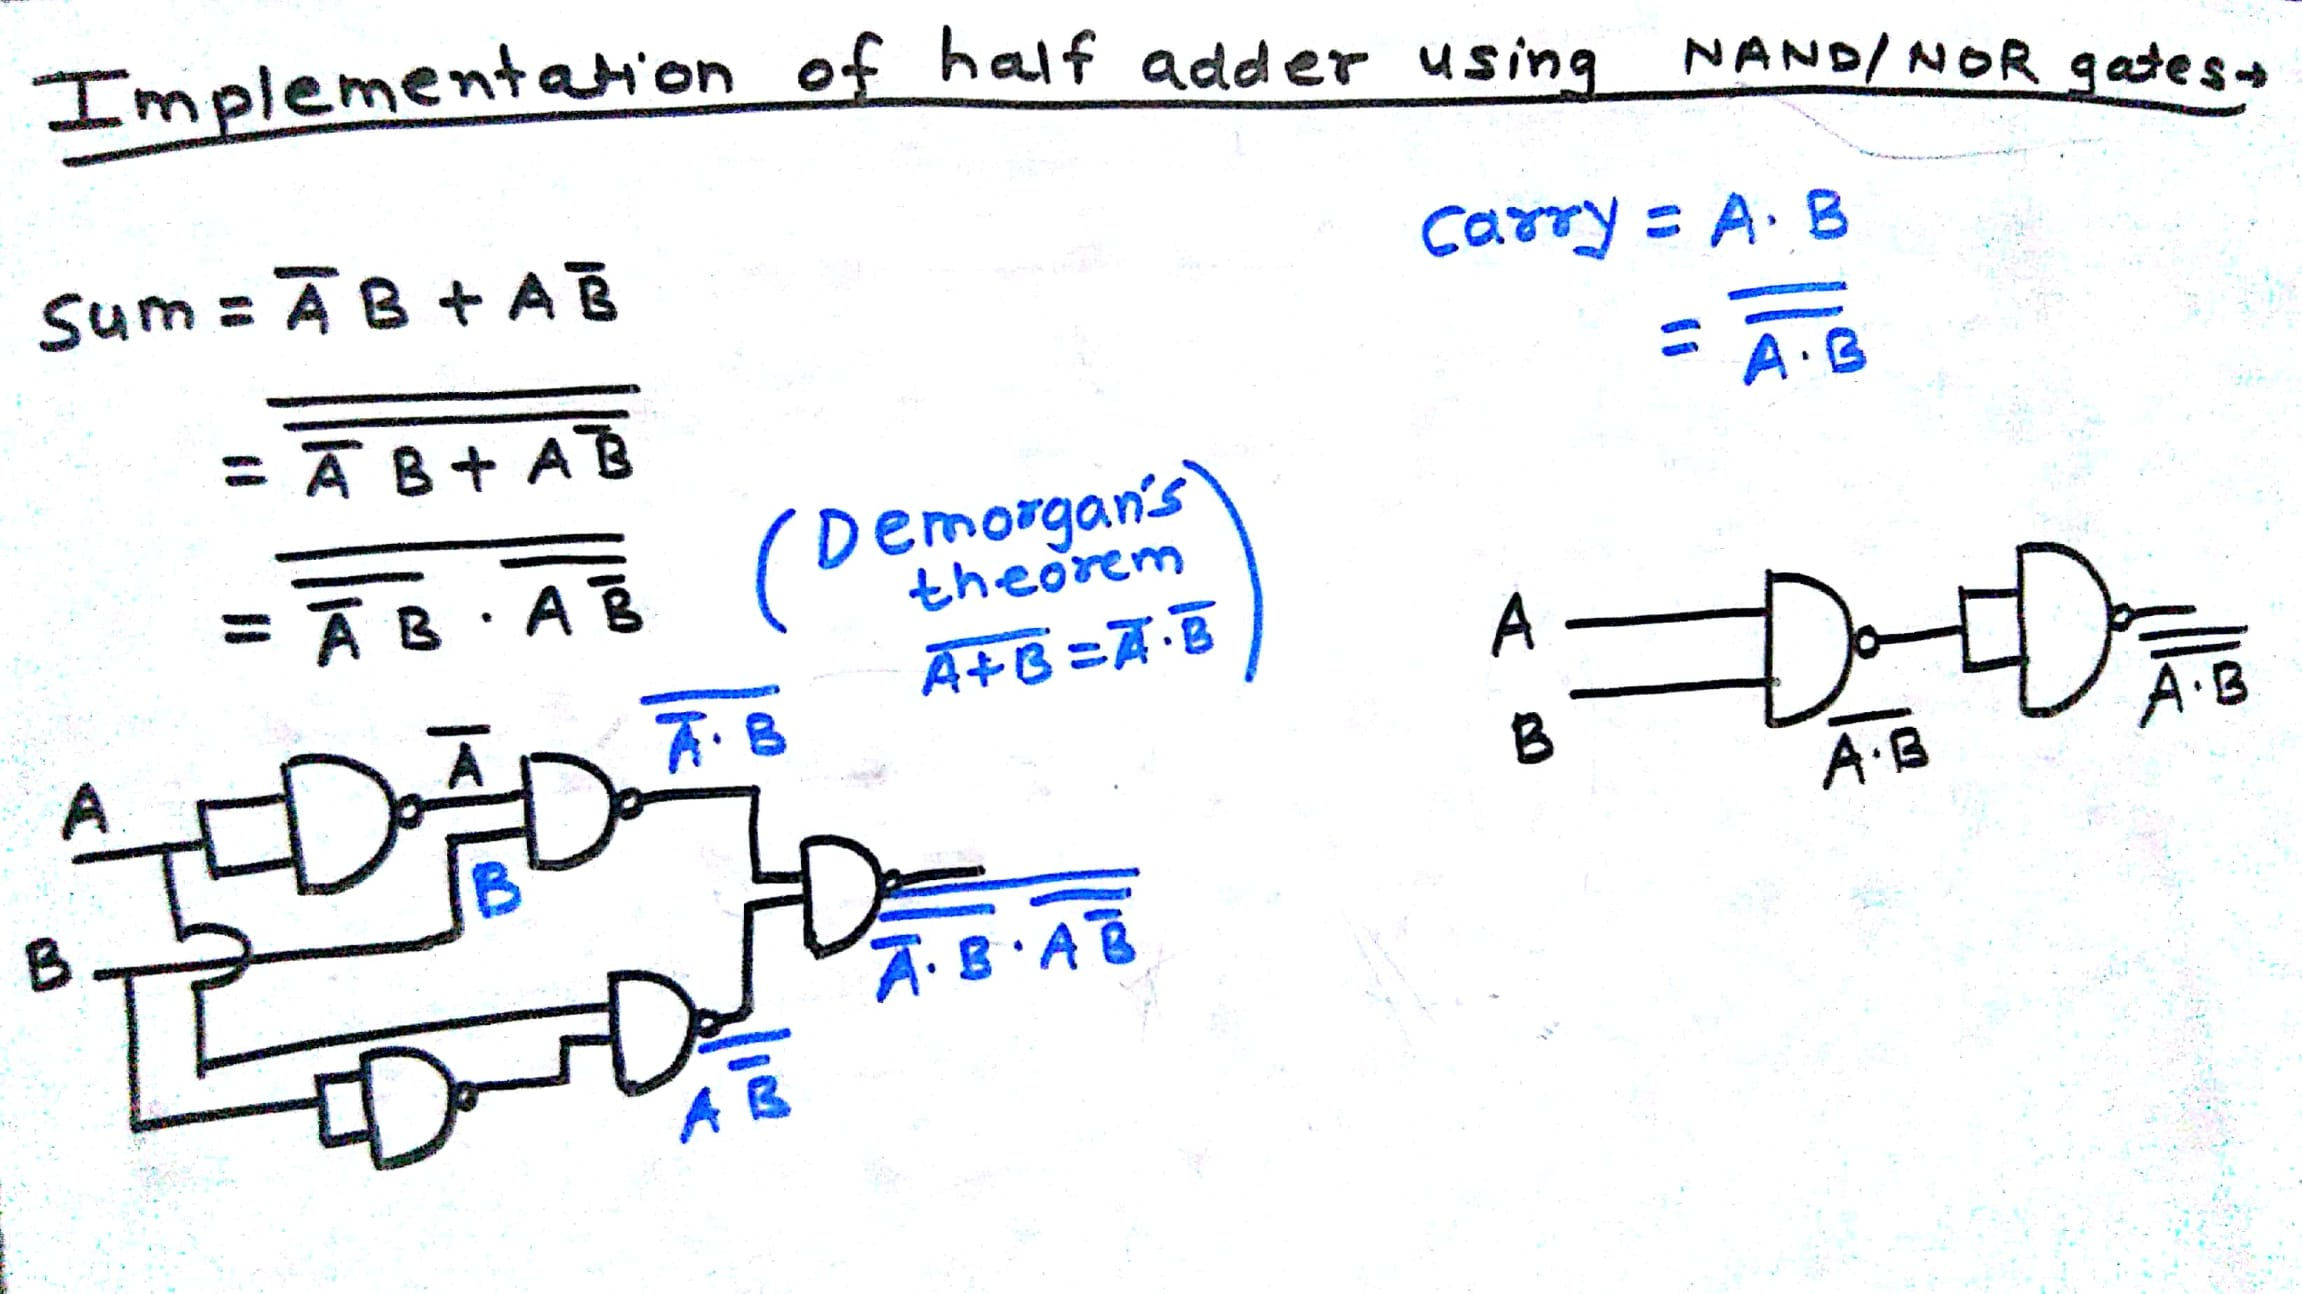 Implementation of half adder using NAND/NOR gates→
Carry = A· B
= A̿·̿B̿
Sum = A̅ B + A B̅
= \overline{\overline{\overline{A} B + A \overline{B}}}
= \overline{\overline{\overline{A} B} · \overline{A \overline{B}}}
(Demorgan's
theorem
\overline{A+B} = \overline{A}·\overline{B})
A
B
\overline{A·B}
\overline{\overline{A·B}}
A
\overline{A}
\overline{\overline{A}·B}
B
B
\overline{\overline{\overline{A}·B} · \overline{A \overline{B}}}
\overline{A \overline{B}}